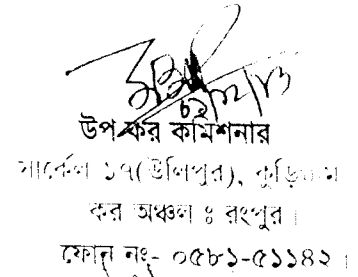 উপ কর কমিশনার
সার্কেল ১৭(উলিপুর), কুড়িগ্রাম
কর অঞ্চল ঃ রংপুর।
ফোন নং- ০৫৮১-৫১১৪২।